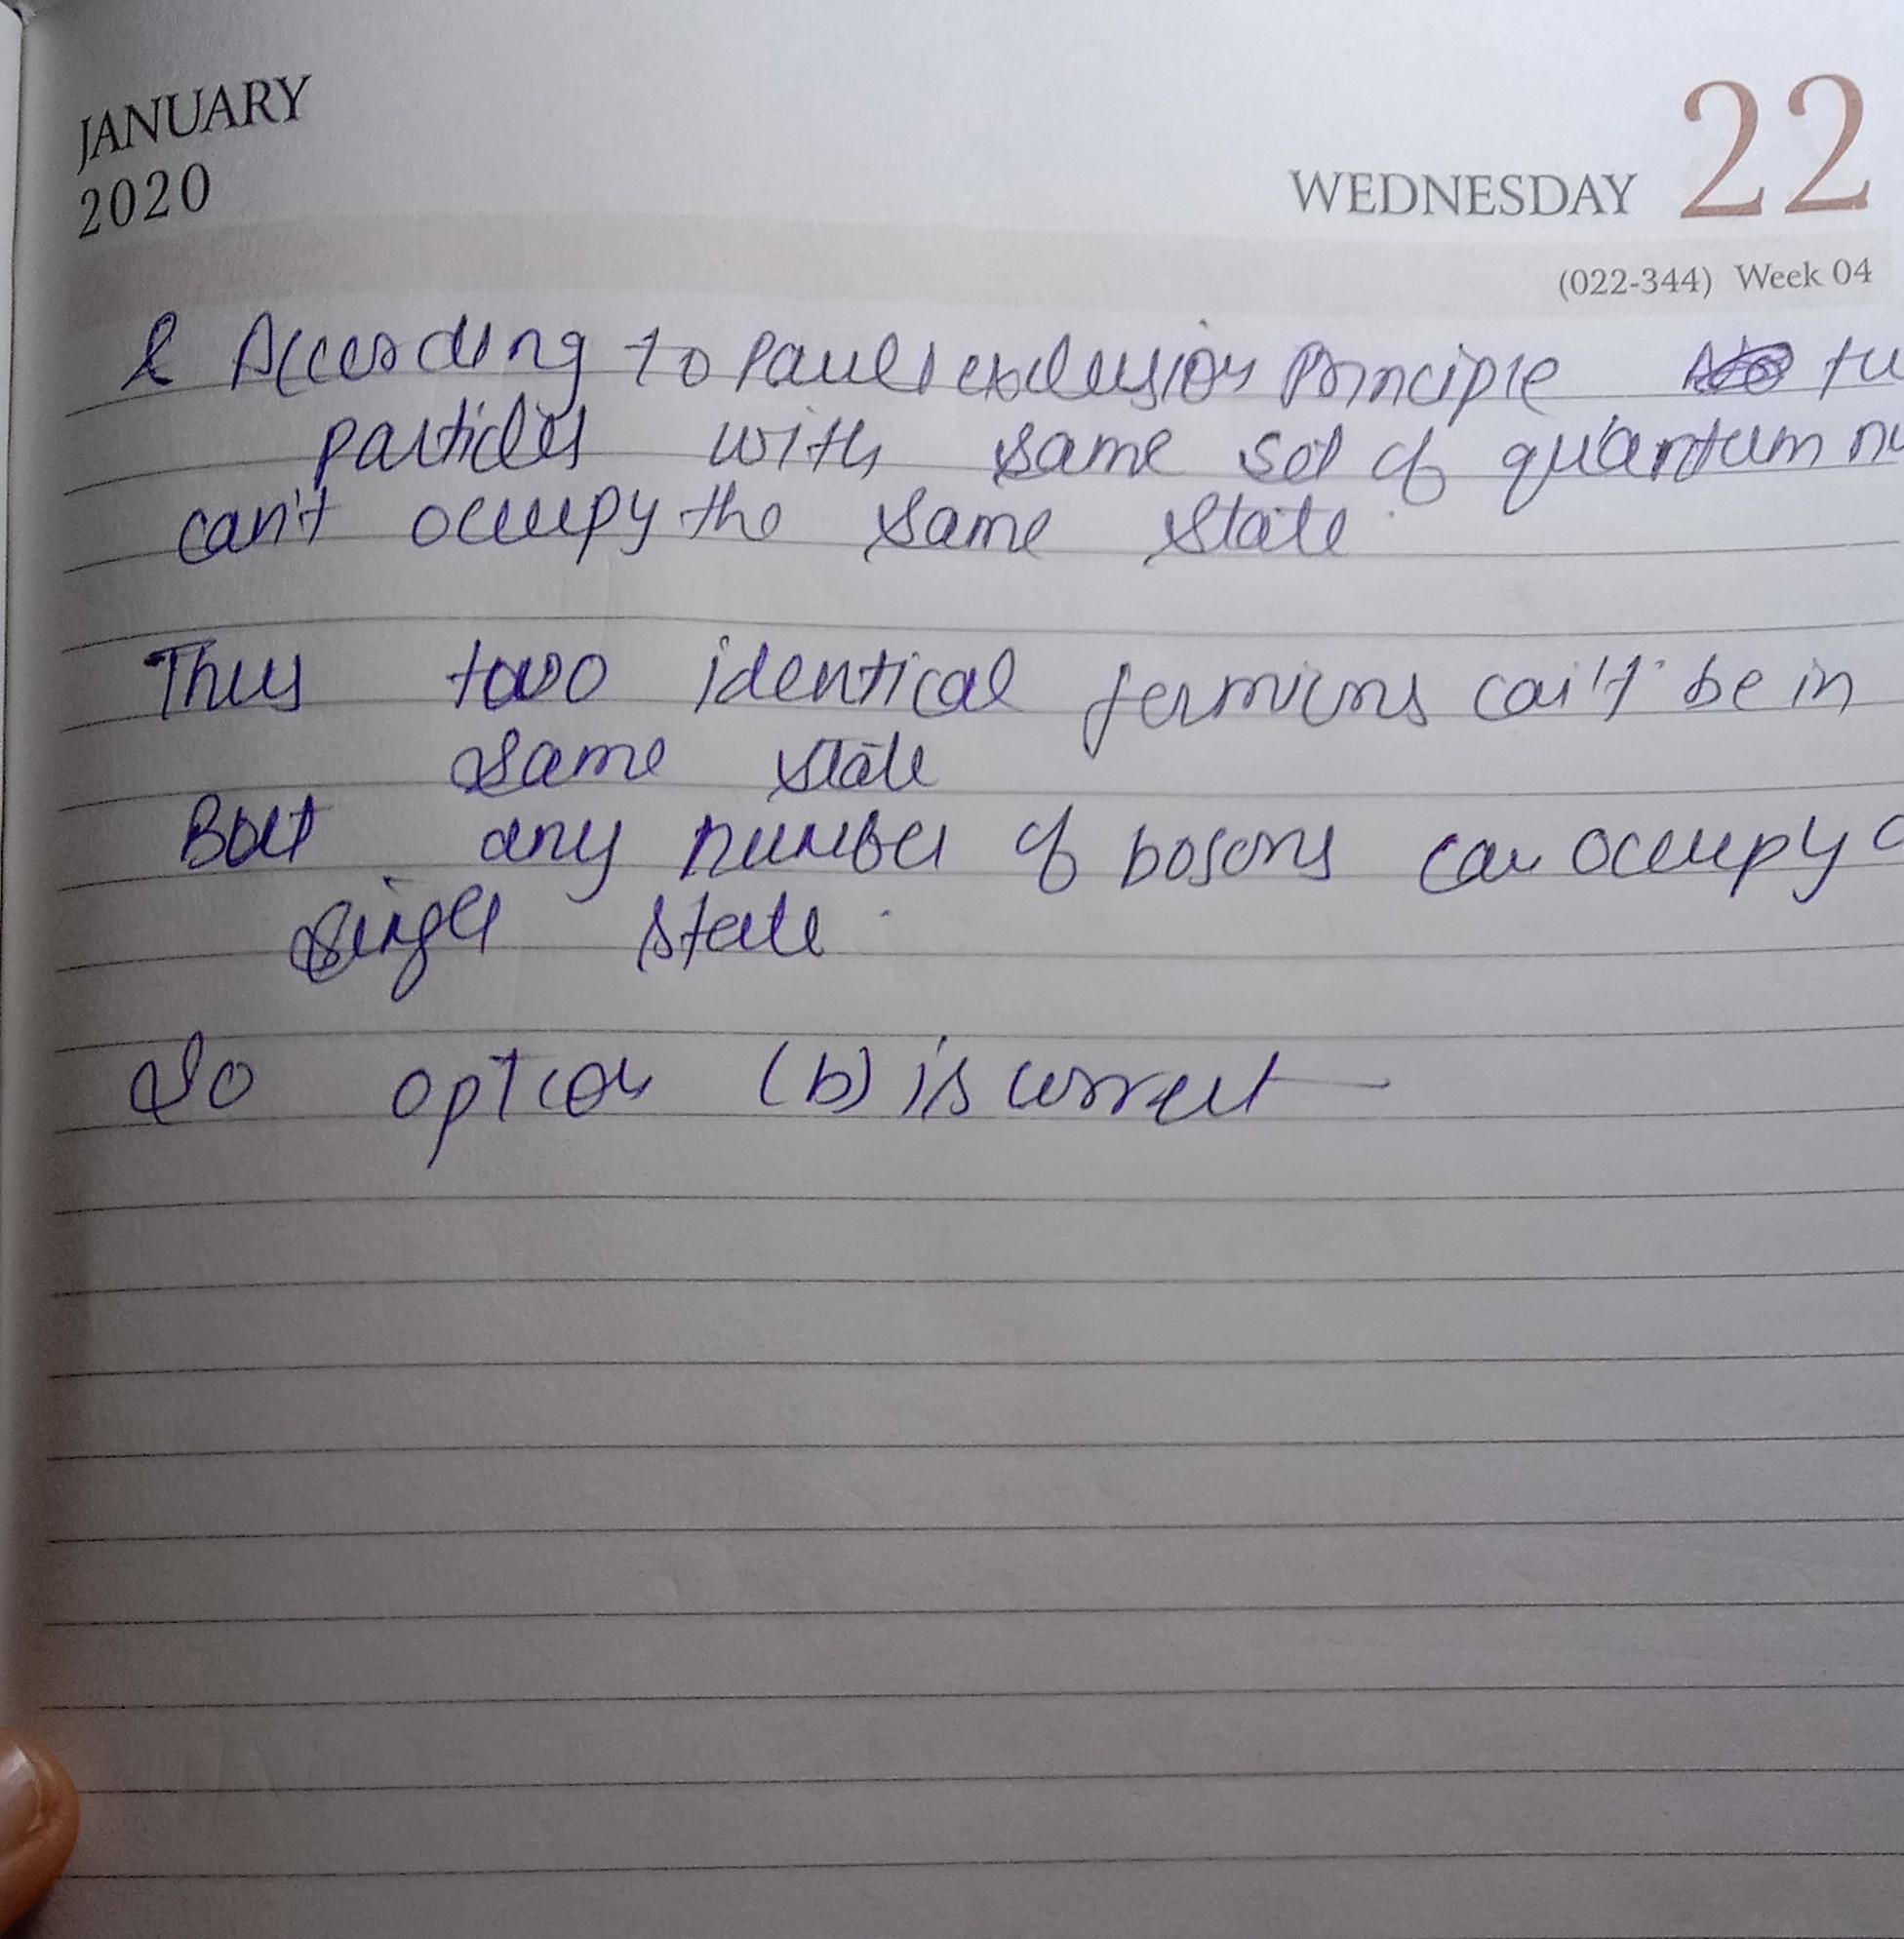 JANUARY
2020
WEDNESDAY 22
(022-344) Week 04
& According to Pauli exclusion Principle
particles with same set of quantum
can't occupy the same state.
Thus two identical fermions can't be in
same state
But any number of bosons can occupy a
single state.
So option (b) is correct